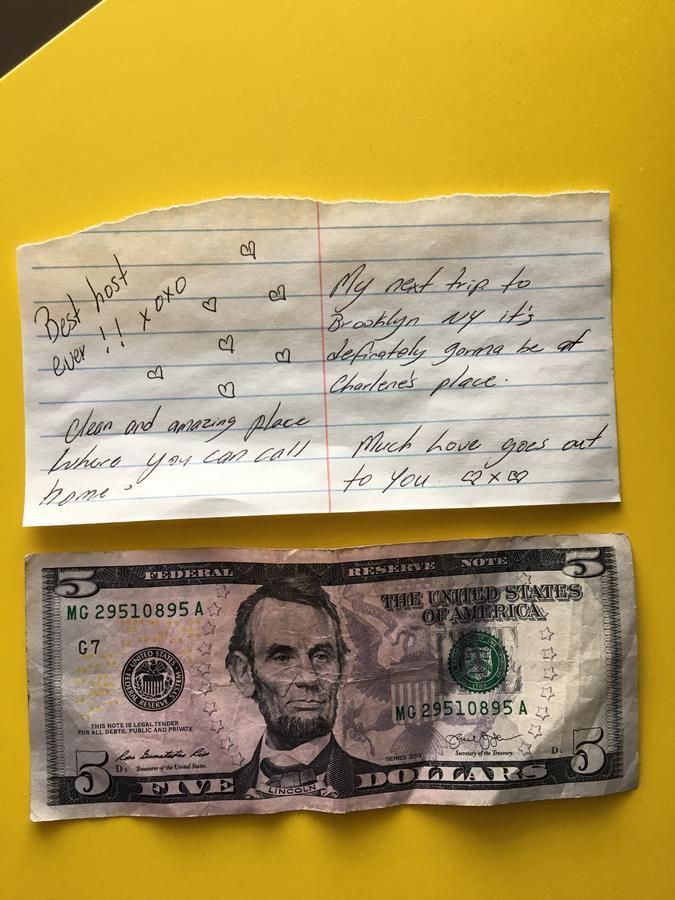 Best host
ever !! xoxo
Clean and amazing place
where you can call
home"
My next trip to
Brooklyn NY it's
definately gonna be at
Charlene's place.
Much Love goes out
to you. x
5 FEDERAL RESERVE NOTE 5
MG 29510895 A
THE UNITED STATES
OF AMERICA
G7
UNITED STATES FEDERAL RESERVE SYSTEM
MG 29510895 A
THIS NOTE IS LEGAL TENDER
FOR ALL DEBTS, PUBLIC AND PRIVATE
Treasurer of the United States.
SERIES 2013
Secretary of the Treasury.
5 FIVE LINCOLN DOLLARS 5